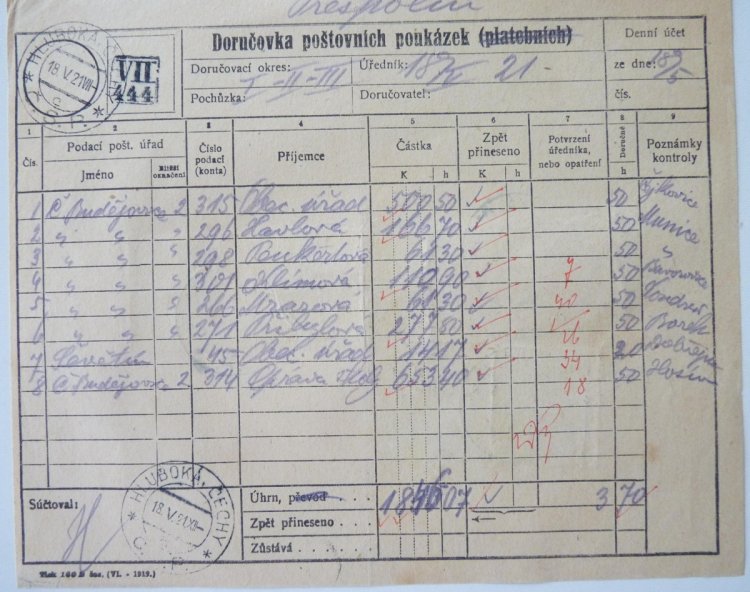 HLUBOKÁ, ČECHY
18.V.21 VII
C
Č.S.P.
VII
444
Doručovka poštovních poukázek (platebních)
Doručovací okres: I-II-III
Úředník: 18/V 21.
Pochůzka:
Doručovatel:
Denní účet
ze dne: 18/5
čís.
1 2 3 4 5 6 7 8 9
Čís. Podací pošt. úřad Číslo podací (konta) Příjemce Částka Zpět přineseno Potvrzení úředníka, nebo opatření Doručné Poznámky kontroly
Jméno Bližší označení K h K h h
1 Č Budějovice 2 315 Obec. úřad 500 50 50
2 " " " 296 Havlová 166 70 50 Munice
3 " " " 298 61 30 50 "
4 " " " 301 Klímová 110 90 7 50
5 " " " 266 Mrazová 61 30 20 50
6 " " " 271 Přibylová 277 80 26 50 Borek
7 45 Obec. úřad 14 17 34 20
8 Č Budějovice 2 314 Správa 653 40 18 50 Hosín
Součtoval:
HLUBOKÁ, ČECHY
18.V.21.XII
Č.S.P.
Úhrn, převod 1846 07 3 70
Zpět přineseno
Zůstává
Tisk 160 B čes. (VI. - 1919.)